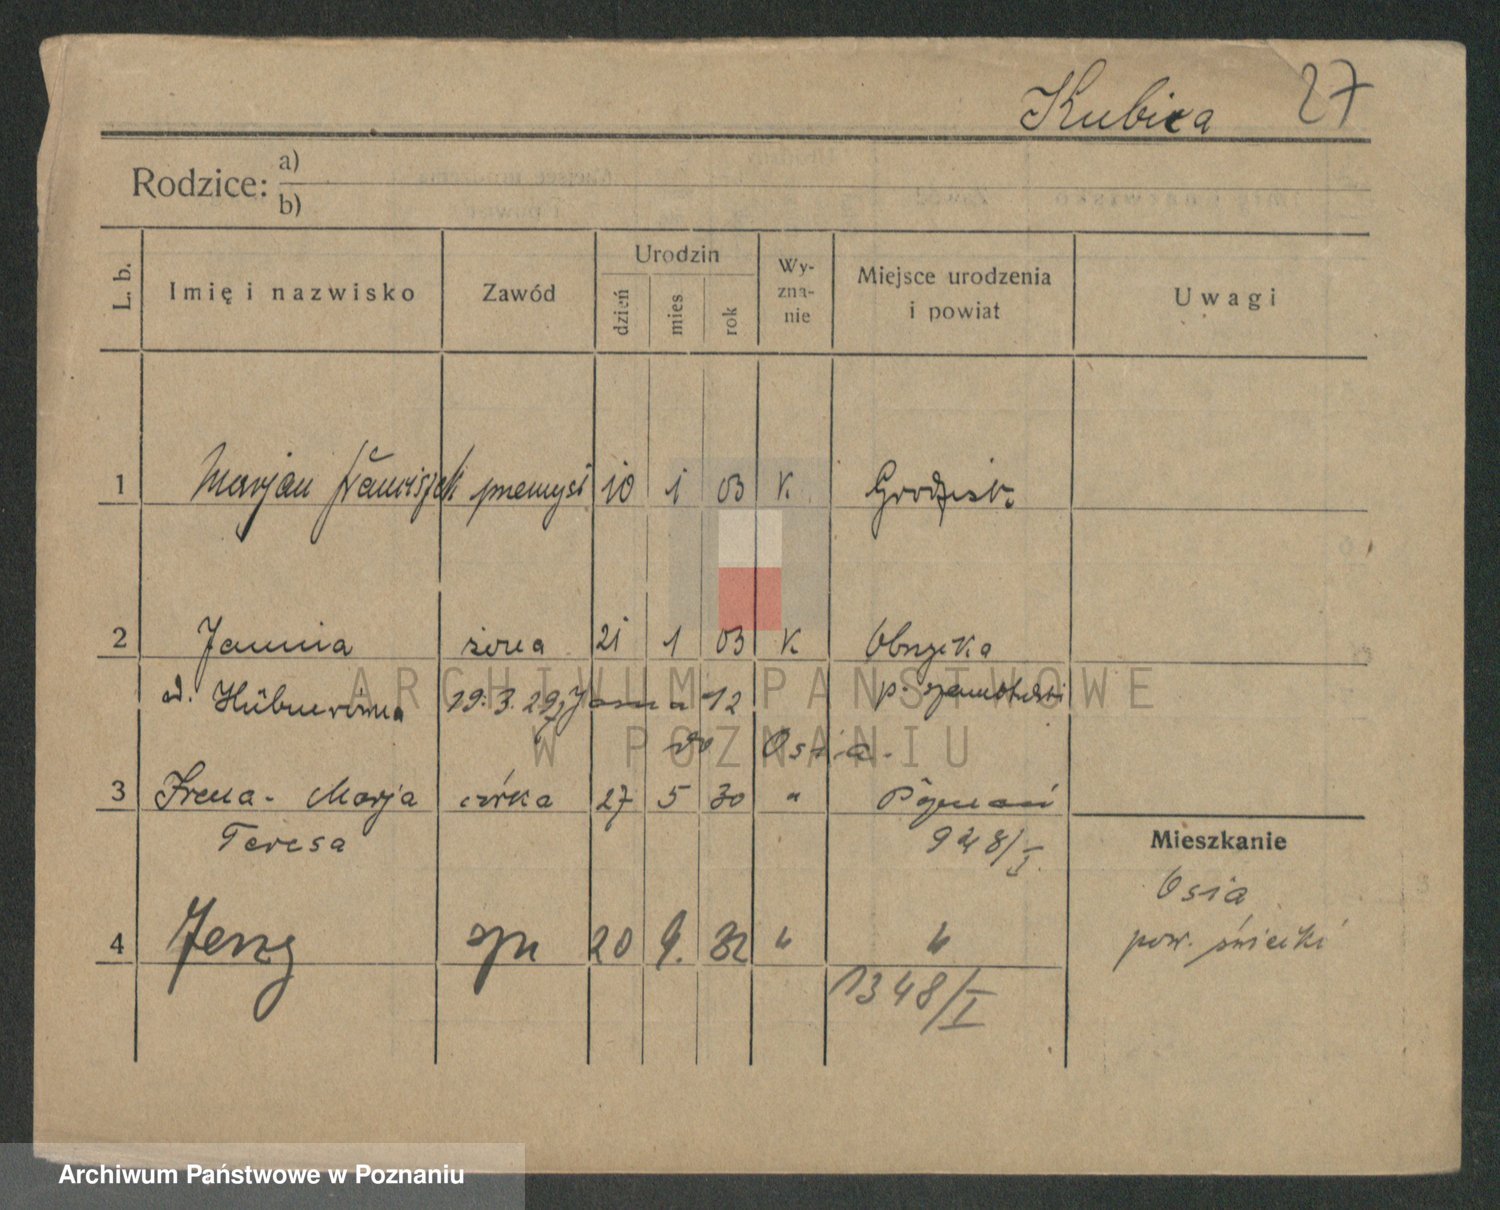 Kubica 27
Rodzice: a)
b)
L. b. Imię i nazwisko Zawód Urodzin dzień mies rok Wy-zna-nie Miejsce urodzenia i powiat Uwagi
1 Marjan Franciszek przemysł 10 1 03 K. Grodzisk.
2 Janina żona 21 1 03 K Obrzycka
Hübnerówna 19.3.29 12 p. szamotulski
do Osia.
3 Irena - Marja córka 27 5 30 " Poznań
Teresa 948/I.
Mieszkanie
Osia
pow. świecki
4 Jerzy syn 20 9. 32 " "
1348/I
ARCHIWUM PAŃSTWOWE
W POZNANIU
Archiwum Państwowe w Poznaniu